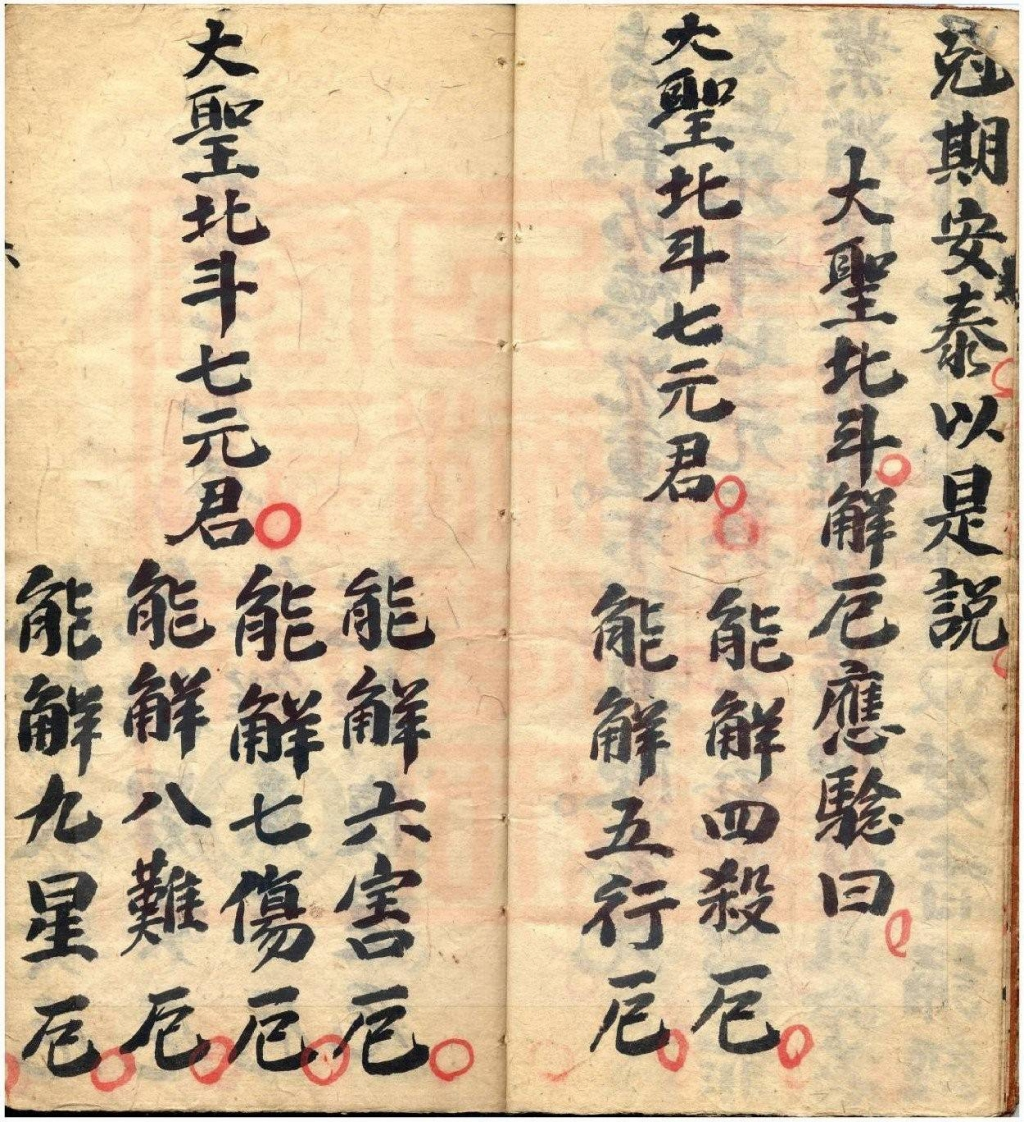 尅期安泰以是説
大聖北斗解厄應驗曰
大聖北斗七元君
能解四殺厄
能解五行厄
大聖北斗七元君
能解六害厄
能解七傷厄
能解八難厄
能解九星厄